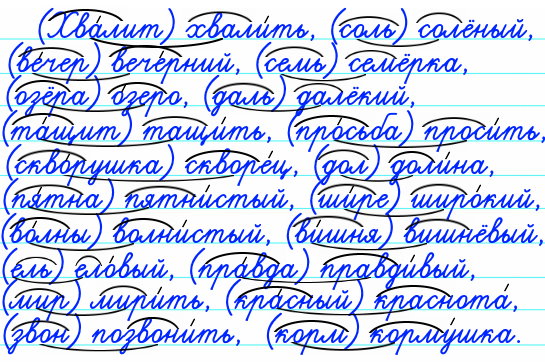 (Хва́лит) хвали́ть, (соль) солёный,
(ве́чер) вече́рний, (семь) семёрка,
(озёра) о́зеро, (даль) далёкий,
(та́щит) тащи́ть, (про́сьба) проси́ть,
(скво́рушка) скворе́ц, (дол) доли́на,
(пя́тна) пятни́стый, (ши́ре) широ́кий,
(во́лны) волни́стый, (ви́шня) вишнёвый,
(ель) ело́вый, (пра́вда) правди́вый,
(мир) мири́ть, (кра́сный) краснота́,
(звон) позвони́ть, (корм) корму́шка.